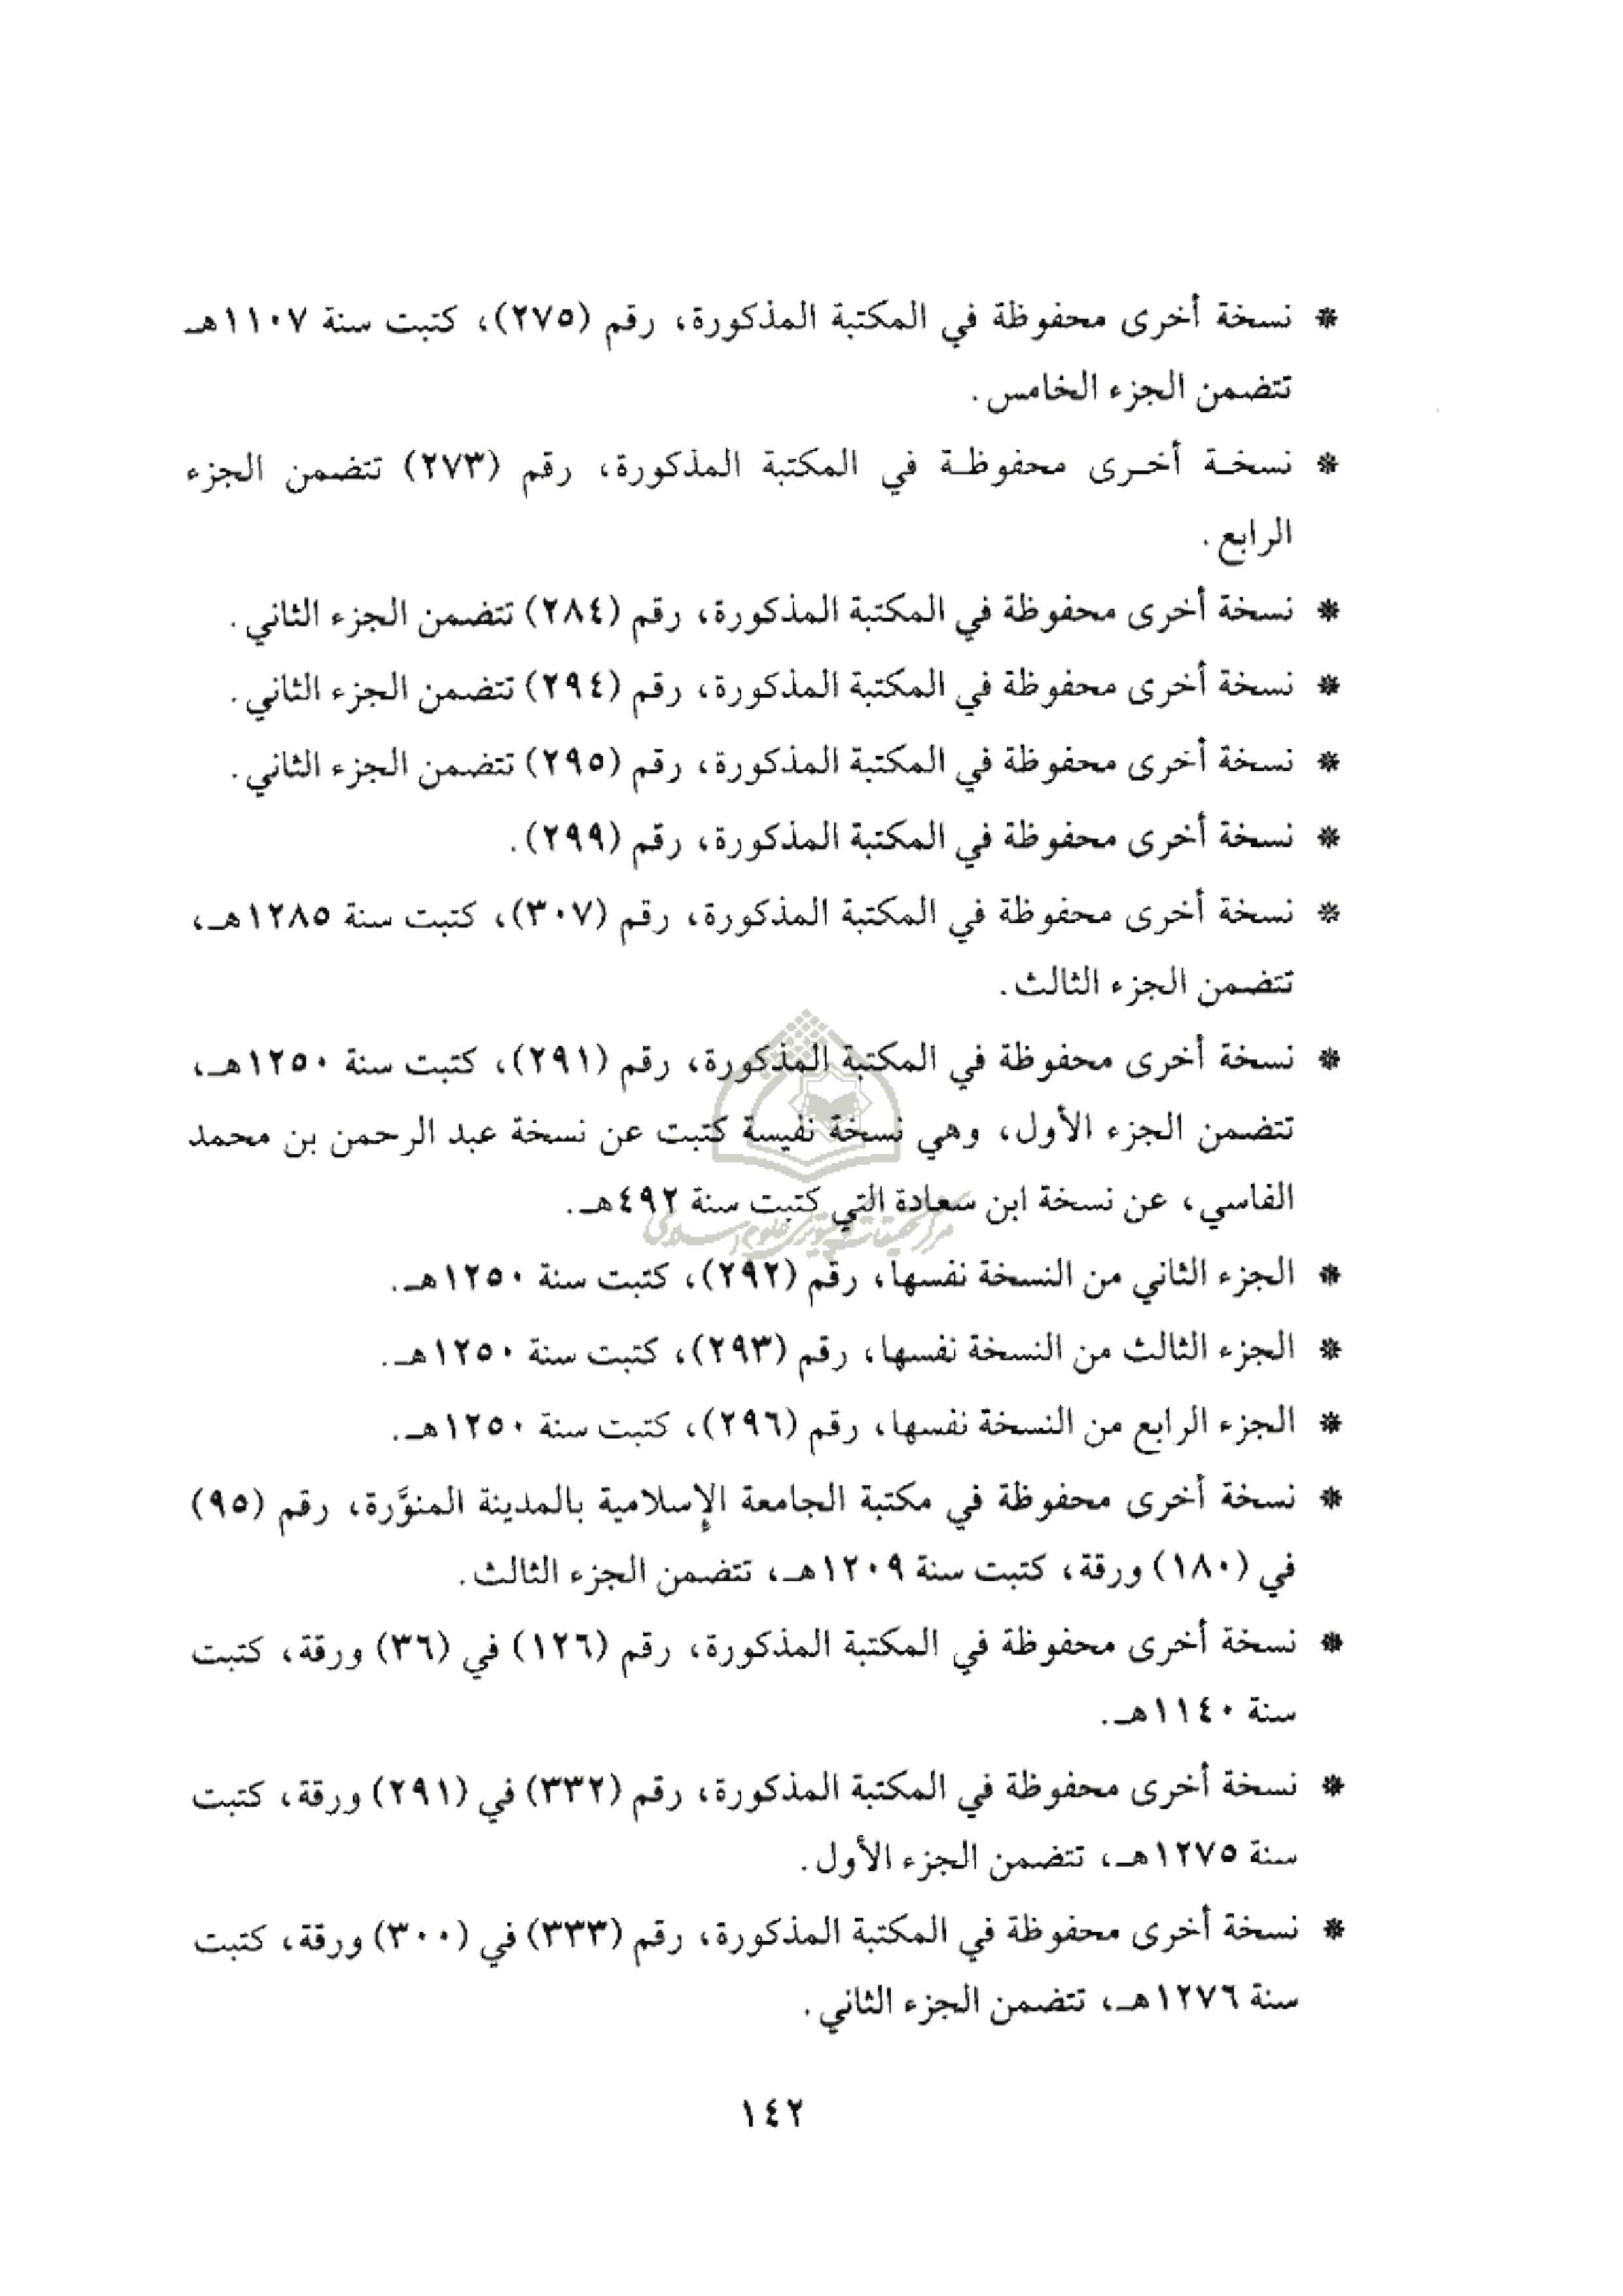 * نسخة أخرى محفوظة في المكتبة المذكورة، رقم (٢٧٥)، كتبت سنة ١١٠٧هـ
تتضمن الجزء الخامس.
* نسخة أخرى محفوظة في المكتبة المذكورة، رقم (٢٧٣) تتضمن الجزء
الرابع.
* نسخة أخرى محفوظة في المكتبة المذكورة، رقم (٢٨٤) تتضمن الجزء الثاني.
* نسخة أخرى محفوظة في المكتبة المذكورة، رقم (٢٩٤) تتضمن الجزء الثاني.
* نسخة أخرى محفوظة في المكتبة المذكورة، رقم (٢٩٥) تتضمن الجزء الثاني.
* نسخة أخرى محفوظة في المكتبة المذكورة، رقم (٢٩٩).
* نسخة أخرى محفوظة في المكتبة المذكورة، رقم (٣٠٧)، كتبت سنة ١٢٨٥هـ،
تتضمن الجزء الثالث.
* نسخة أخرى محفوظة في المكتبة المذكورة، رقم (٢٩١)، كتبت سنة ١٢٥٠هـ،
تتضمن الجزء الأول، وهي نسخة نفيسة كتبت عن نسخة عبد الرحمن بن محمد
الفاسي، عن نسخة ابن سعادة التي كتبت سنة ٤٩٢هـ.
* الجزء الثاني من النسخة نفسها، رقم (٢٩٢)، كتبت سنة ١٢٥٠هـ.
* الجزء الثالث من النسخة نفسها، رقم (٢٩٣)، كتبت سنة ١٢٥٠هـ.
* الجزء الرابع من النسخة نفسها، رقم (٢٩٦)، كتبت سنة ١٢٥٠هـ.
* نسخة أخرى محفوظة في مكتبة الجامعة الإسلامية بالمدينة المنوَّرة، رقم (٩٥)
في (١٨٠) ورقة، كتبت سنة ١٢٠٩هـ، تتضمن الجزء الثالث.
* نسخة أخرى محفوظة في المكتبة المذكورة، رقم (١٢٦) في (٣٦) ورقة، كتبت
سنة ١١٤٠هـ.
* نسخة أخرى محفوظة في المكتبة المذكورة، رقم (٣٣٢) في (٢٩١) ورقة، كتبت
سنة ١٢٧٥هـ، تتضمن الجزء الأول.
* نسخة أخرى محفوظة في المكتبة المذكورة، رقم (٣٣٣) في (٣٠٠) ورقة، كتبت
سنة ١٢٧٦هـ، تتضمن الجزء الثاني.
١٤٢